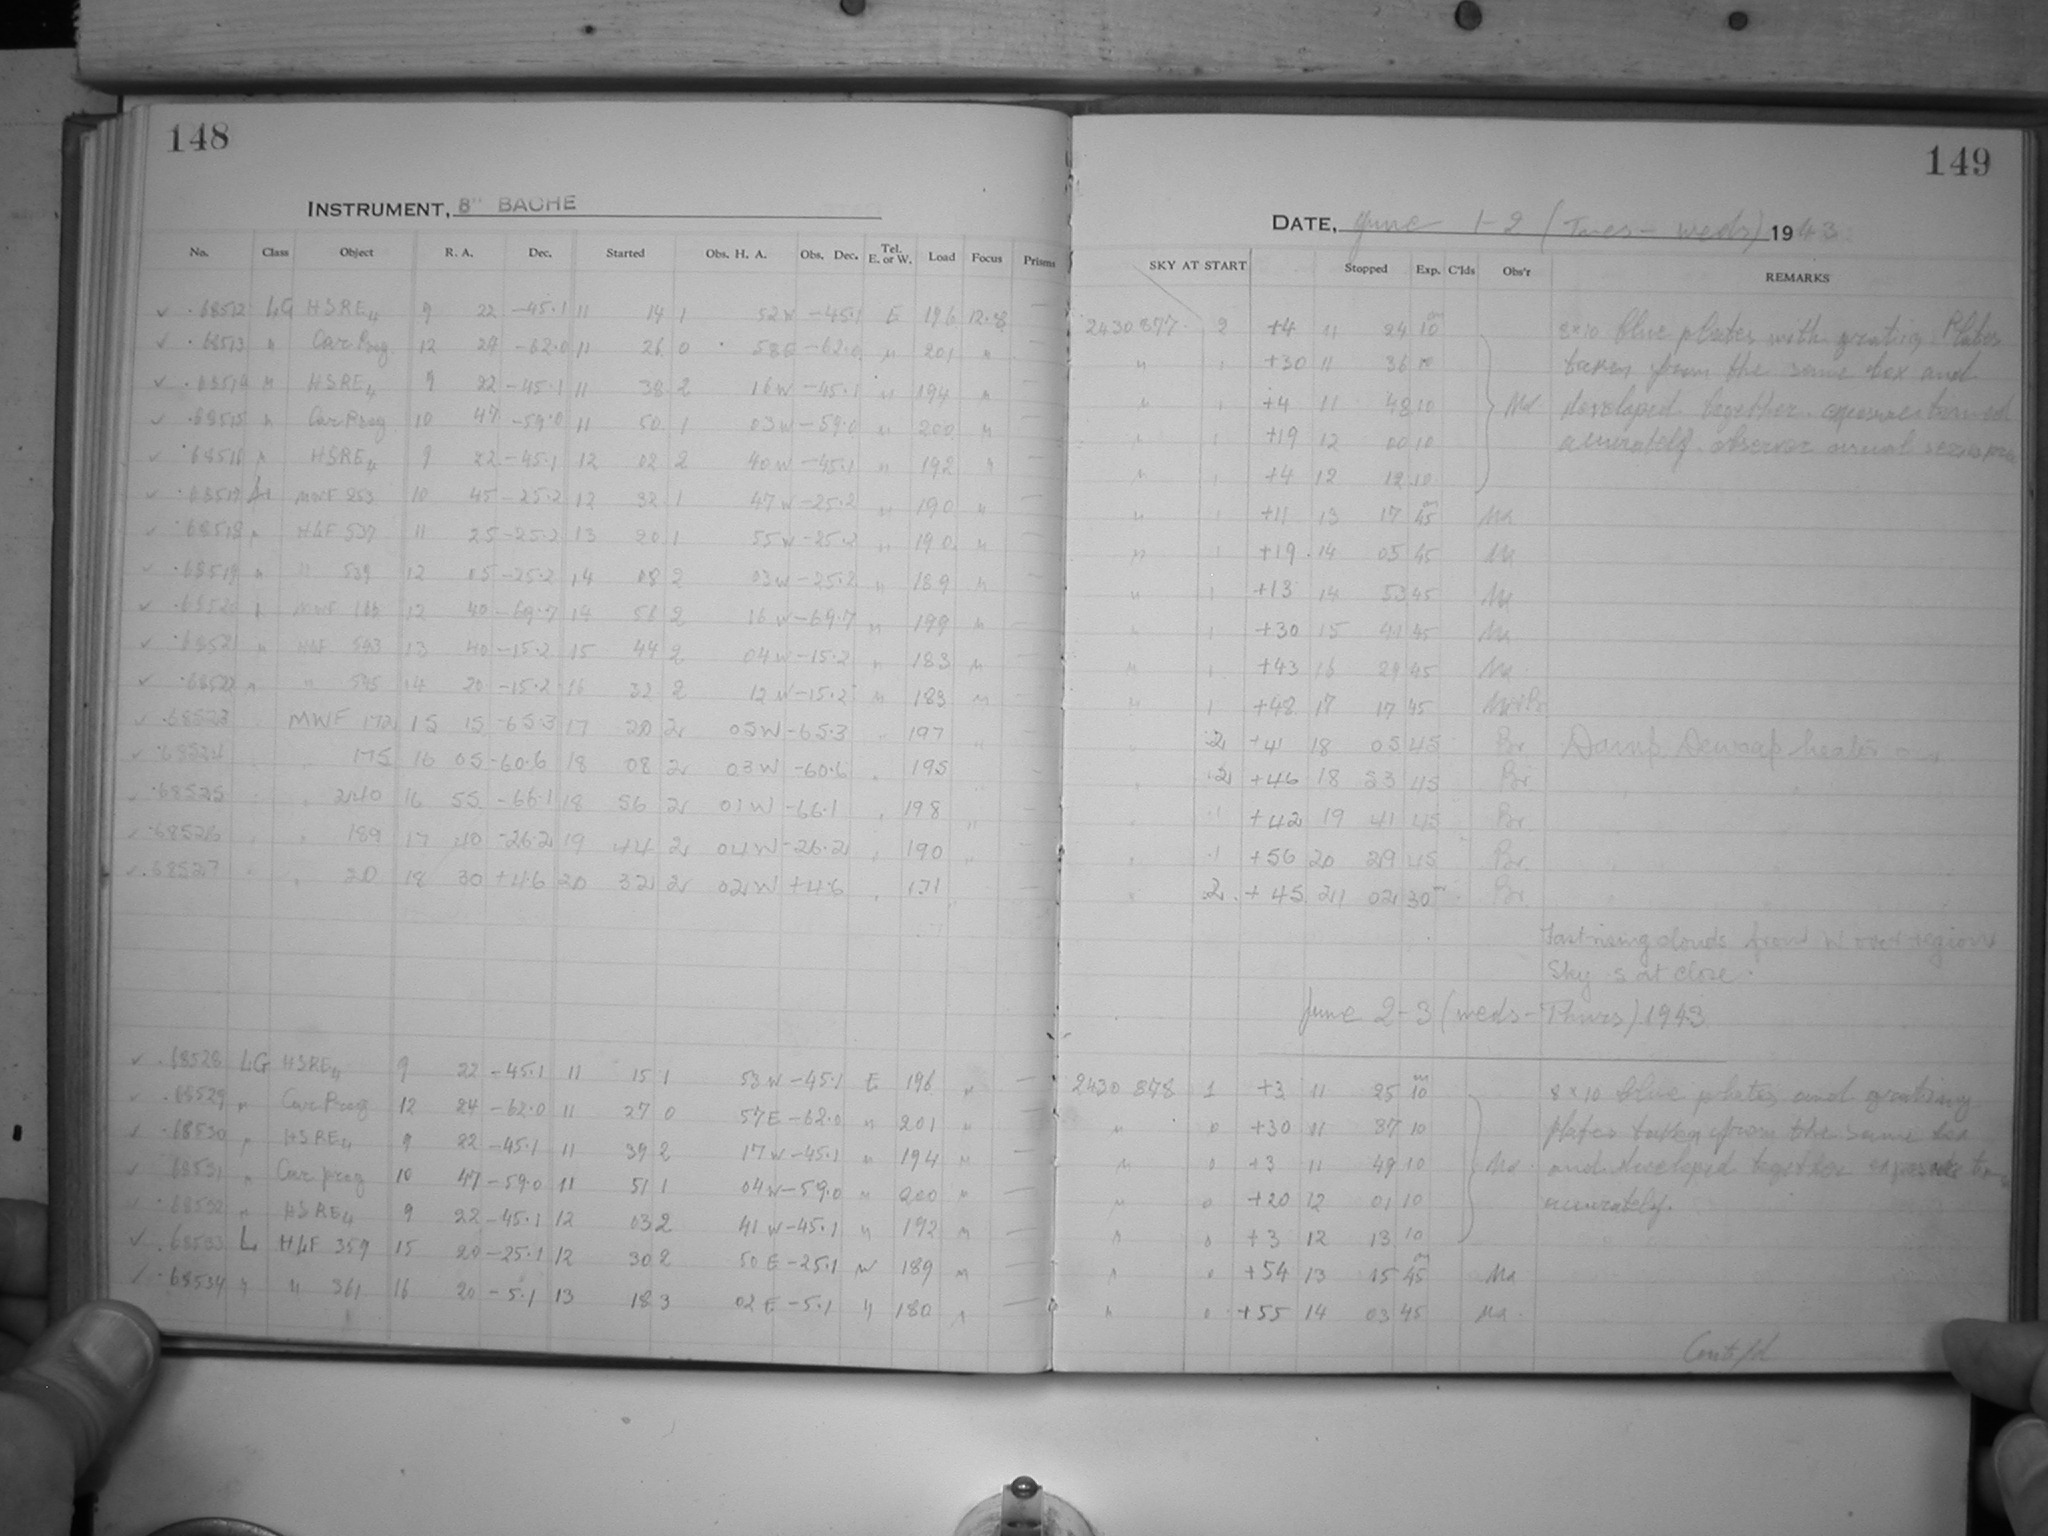 148
INSTRUMENT, 8" BACHE
No. Class Object R. A. Dec. Started Obs. H. A. Obs. Dec. Tel. E. or W. Load Focus Prisms
68512 LG HSRE4 9 22 -45.1 11 14 1 52W -45.1 E 196
68513 " Car Prog 12 24 -62.0 11 26 0 58E -62.0 " 201 "
68514 " HSRE4 9 22 -45.1 11 38 2 16W -45.1 " 194 "
68515 " Car Prog 10 47 -59.0 11 50 1 03W -59.0 " 200 "
68516 " HSRE4 9 22 -45.1 12 02 2 40W -45.1 " 192 "
68517 MWF 10 45 -25.2 12 32 1 47W -25.2 " 190 "
68518 " H4F 537 11 25 -25.2 13 20 1 55W -25.2 " 190 "
68519 " " 539 12 05 -25.2 14 08 2 03W -25.2 " 189 "
68520 MWF 12 40 -69.7 14 56 2 16W -69.7 " 199 "
68521 " 13 40 -15.2 15 44 2 04W -15.2 " 183 "
68522 " " 545 14 20 -15.2 16 32 2 12W -15.2 " 183 "
68523 MWF 172 15 15 -65.3 17 20 2 05W -65.3 " 197 "
68524 " " 175 16 05 -60.6 18 08 2 03W -60.6 " 195
68525 " " 240 16 55 -66.1 18 56 2 01W -66.1 " 198 "
68526 " " 189 17 40 -26.2 19 44 2 04W -26.2 " 190 "
68527 " " 20 18 30 +4.6 20 32 2 02W +4.6 " 171 "
68528 LG HSRE4 9 22 -45.1 11 15 1 53W -45.1 E 196 "
68529 " Car Prog 12 24 -62.0 11 27 0 57E -62.0 " 201 "
68530 " HSRE4 9 22 -45.1 11 39 2 17W -45.1 " 194 "
68531 " Car prog 10 47 -59.0 11 51 1 04W -59.0 " 200 "
68532 " HSRE4 9 22 -45.1 12 03 2 41W -45.1 " 192 "
68533 L H4F 359 15 20 -25.1 12 30 2 50E -25.1 W 189 "
68534 " " 361 16 20 -5.1 13 18 3 02E -5.1 " 180 "
149
DATE, June 1-2 (Tues-Weds) 1943
SKY AT START Stopped Exp. C'lds Obs'r REMARKS
2430877 2 +4 11 24 10m 8×10 blue plates with grating. Plates
" 1 +30 11 36 10 taken from the same box and
" 1 +4 11 48 10 Ma developed together. exposure
" 1 +19 12 00 10 accurately. observer
" 1 +4 12 12 10
" 1 +11 13 17 45m Ma
" 1 +19 14 05 45 Ma
" 1 +13 14 53 45 Ma
" 1 +30 15 41 45 Ma
" 1 +43 16 29 45 Ma
" 1 +48 17 17 45
" 2 +41 18 05 45 Br Damp. Dewcap heater on
" 2 +46 18 53 45 Br " "
" 1 +42 19 41 45 Br
" 1 +56 20 29 45 Br
" 2 +45 21 02 30m Br
Fast rising clouds from W over region
Sky 5 at close.
June 2-3 (Weds-Thurs) 1943
2430878 1 +3 11 25 10m 8×10 blue plates and grating
" 0 +30 11 37 10 plates taken from the same box
" 0 +3 11 49 10 Ma and developed together exposure
" 0 +20 12 01 10 accurately.
" 0 +3 12 13 10
" 0 +54 13 15 45m Ma
" 0 +55 14 03 45 Ma
Cont/d